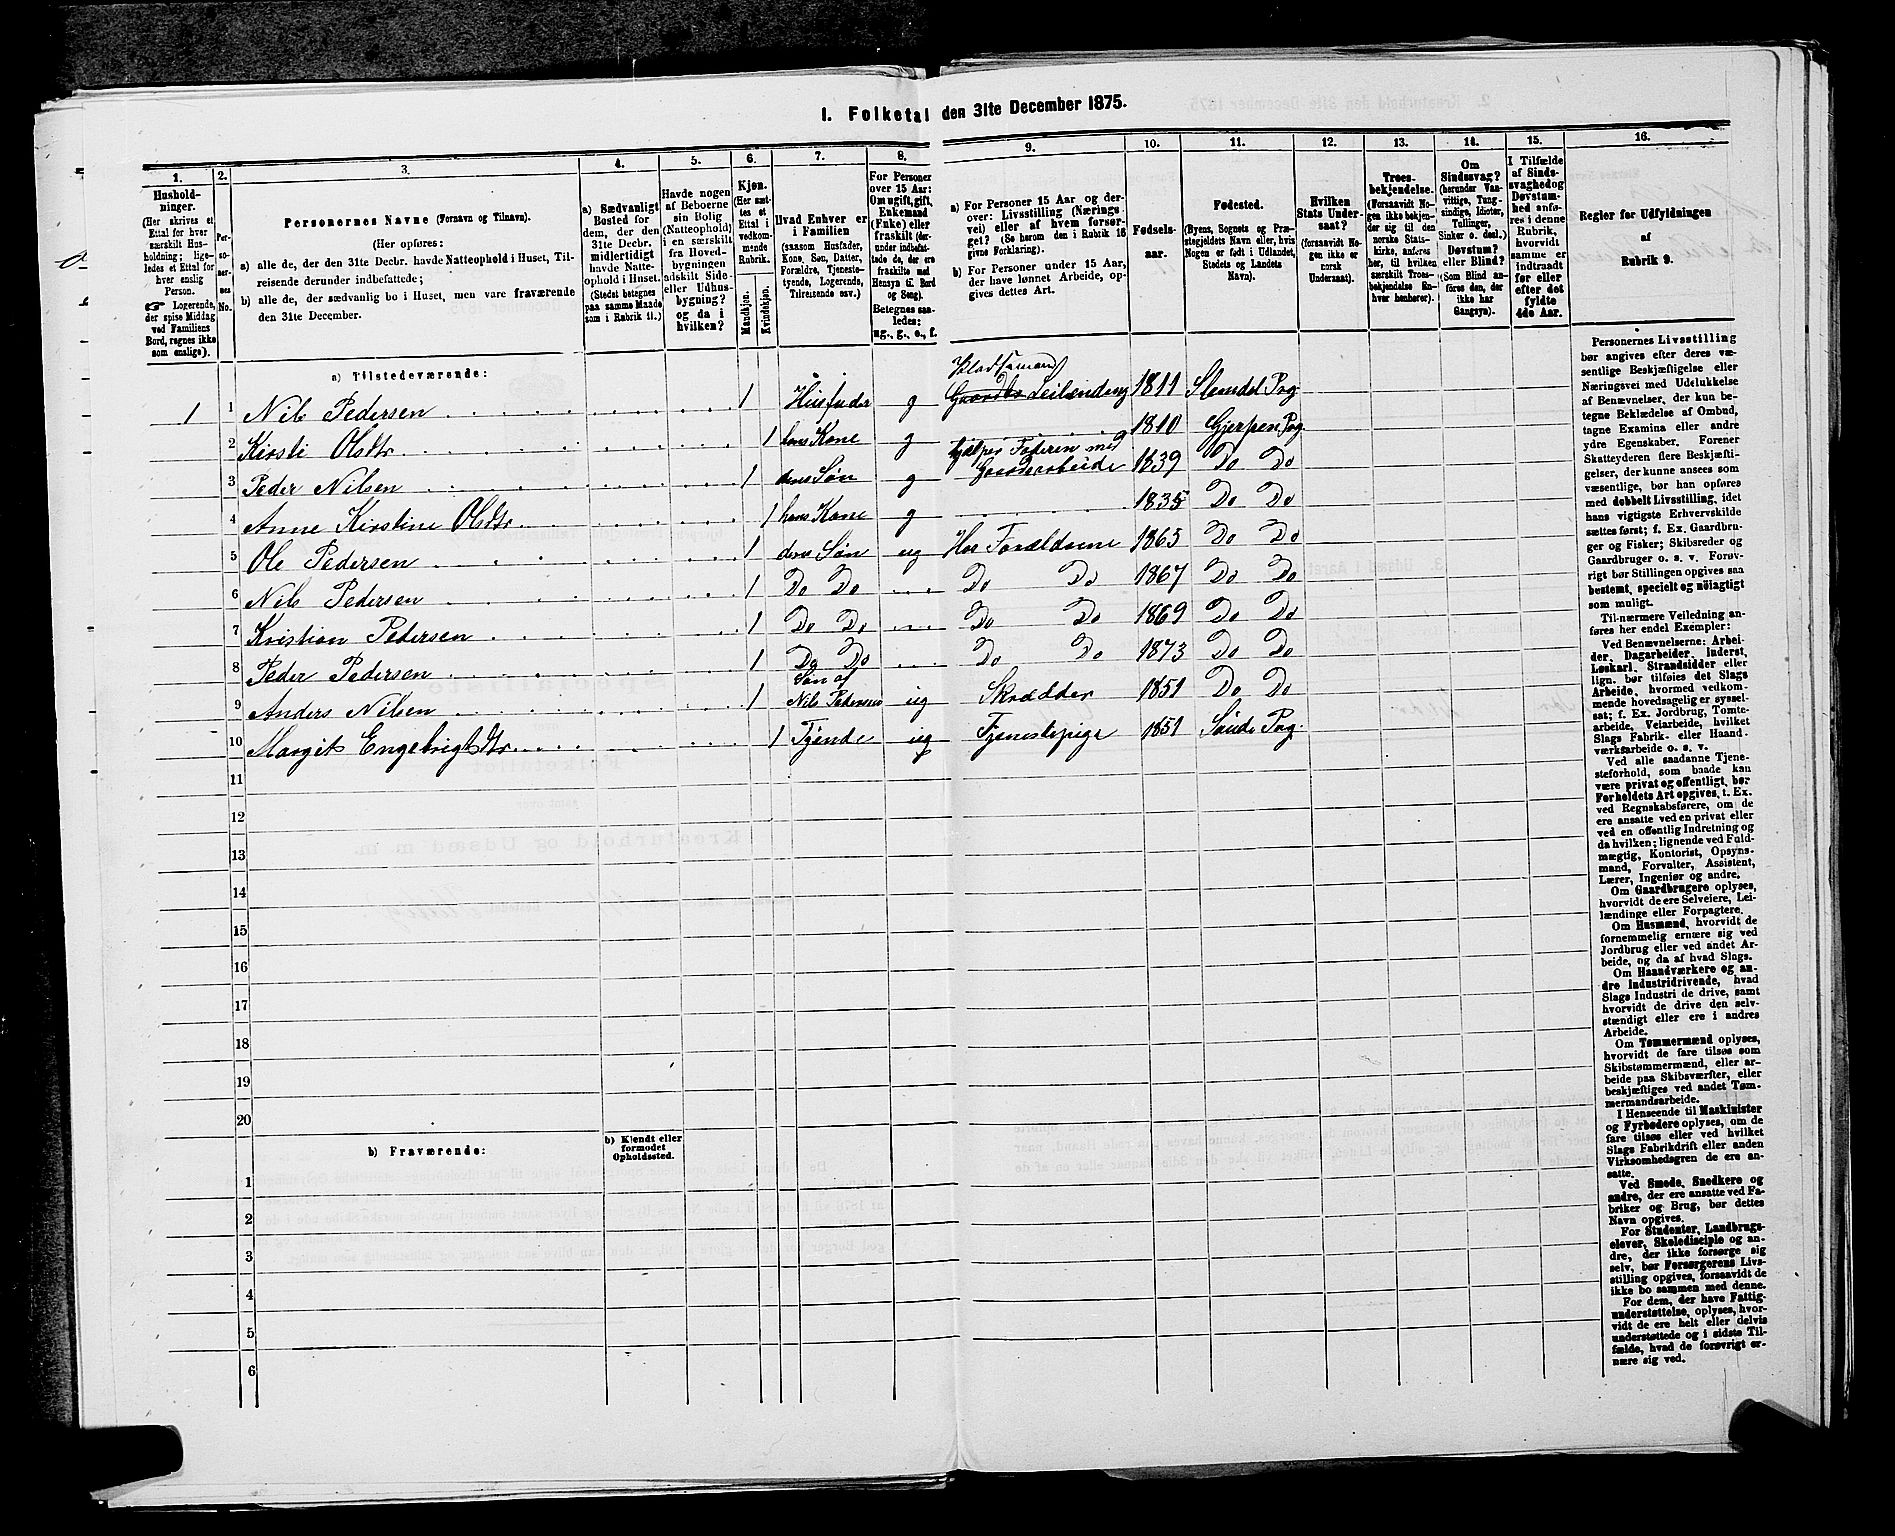 I. Folketal den 31te December 1875.
1. 2. 3. 4. 5. 6. 7. 8. 9. 10. 11. 12. 13. 14. 15. 16.
Hushold-
ninger.
(Her skrives et
Ettal for hver
særskilt Hus-
holdning; lige-
ledes et Ettal for
hver enslig
Person.
☛ Logerende,
der spise Middag
ved Familiens
Bord, regnes ikke
som enslige).
Per-
so-
ner-
nes
No.
Personernes Navne (Fornavn og Tilnavn).
(Her opføres:
a) alle de, der den 31te Decbr. havde Natteophold i Huset, Til-
reisende derunder indbefattede;
b) alle de, der sædvanlig bo i Huset, men vare fraværende
den 31te December.
a) Sædvanligt
Bosted for
dem, der den
31te Decbr.
midlertidigt
havde Natte-
ophold i Huset.
(Stedet betegnes
paa samme Maade
som i Rubrik 11.)
Havde nogen
af Beboerne
sin Bolig
(Natteophold)
i en særskilt
fra Hoved-
bygningen
adskilt Side-
eller Udhus-
bygning?
og da i
hvilken?
Kjøn.
(Her sæt-
tes et
Ettal i
vedkom-
mende
Rubrik.
Mandkjøn.
Kvindekjøn.
Hvad Enhver er
i Familien
(saasom Husfader,
Kone, Søn, Datter,
Forældre, Tjeneste-
tyende, Logerende,
Tilreisende osv.)
For Personer
over 15 Aar:
Om ugift, gift,
Enkemand
(Enke) eller
fraskilt (der-
under indbefat-
tede de, der ere
fraskilte med
Hensyn til Bord
og Seng).
Betegnes saa-
ledes:
ug., g., e., f.
a) For Personer 15 Aar og der-
over: Livsstilling (Nærings-
vei) eller af hvem forsør-
get? (Se herom den i Rubrik 16
givne Forklaring).
b) For Personer under 15 Aar,
der have lønnet Arbeide, op-
gives dettes Art.
Fødsels-
aar.
Fødested.
(Byens, Sognets og Præ-
stegjeldets Navn eller, hvis
Nogen er født i Udlandet,
Stedets og Landets
Navn).
Hvilken
Stats Under-
saat?
(forsaavidt No-
gen ikke er
norsk
Undersaat).
Troes-
bekjendelse.
(Forsaavidt No-
gen ikke bekjen-
der sig til den
norske Stats-
kirke, anføres
her, til hvilken
særskilt Troes-
bekjendelse En-
hver henhører).
Om
Sindssvag?
(herunder Van-
vittige, Tung-
sindige, Idioter,
Tullinger,
Sinker o. desl.)
Døvstum?
eller Blind?
(Som Blind an-
føres den, der
ikke har
Gangsyn).
I Tilfælde
af Sinds-
svaghed og
Døvstum-
hed anfø-
res i denne
Rubrik,
hvorvidt
samme er
indtraadt
før eller
efter det
fyldte
4de Aar.
Regler for Udfyldningen
af
Rubrik 9.
a) Tilstedeværende:
Pladsemand
1 1 Nils Pedersen 1 Husfader g Leilænding 1811 Slemdal Pg
2 Kirsti Olsdtr 1 hans Kone g 1810 Gjerpen Pg.
hjælper Faderen med
3 Peder Nilsen 1 deres Søn g Gaardsarbeide 1839 Do Do
4 Anne Kirstine Olsdtr 1 hans Kone g 1835 Do Do
5 Ole Pedersen 1 deres Søn ug Hos Forældrene 1865 Do Do
6 Nils Pedersen 1 Do Do Do Do 1867 Do Do
7 Kristian Pedersen 1 Do Do Do Do 1869 Do Do
8 Peder Pedersen 1 Do Do Do Do 1873 Do Do
Søn af
9 Anders Nilsen 1 Nils Pedersen ug Skrædder 1851 Do Do
10 Margit Engebrigtsdtr 1 Tjende ug Tjenestepige 1851 Saude Pg.
11
12
13
14
15
16
17
18
19
20
b) Fraværende:
b) Kjendt eller
formodet
Opholdssted.
1
2
3
4
5
6
Personernes Livsstilling
bør angives efter deres væ-
sentlige Beskjæftigelse eller
Næringsvei med Udelukkelse
af Benævnelser, der kun be-
tegne Beklædelse af Ombud,
tagne Examina eller andre
ydre Egenskaber. Forener
Skatteyderen flere Beskjæfti-
gelser, der kunne ansees som
væsentlige, bør han opføres
med dobbelt Livsstilling, idet
hans vigtigste Erhvervskilde
sættes først; f. Ex. Gaardbru-
ger og Fisker; Skibsreder og
Gaardbruger o. s. v. Forøv-
rigt bør Stillingen opgives saa
bestemt, specielt og nøiagtigt
som muligt.
Til nærmere Veiledning an-
føres her endel Exempler:
Ved Benævnelserne: Arbei-
der, Dagarbeider, Inderst,
Løskarl, Strandsidder eller
lign. bør tilføies det Slags
Arbeide, hvormed vedkom-
mende hovedsagelig er syssel-
sat; f. Ex. Jordbrug, Tomte-
arbeide, Veiarbeide, hvilket
Slags Fabrik- eller Haand-
værksarbeide o. s. v.
Ved alle saadanne Tjene-
steforhold, som baade kan
være privat og offentligt, bør
Forholdets Art opgives, t. Ex.
ved Regnskabsførere, om de
ere ansatte ved en privat eller
ved en offentlig Indretning og
da hvilken; lignende ved Fuld-
mægtig, Kontorist, Opsyns-
mand, Forvalter, Assistent,
Lærer, Ingeniør og andre.
Om Gaardbrugere oplyses,
hvorvidt de ere Selveiere, Lei-
lændinge eller Forpagtere.
Om Husmænd, hvorvidt de
fornemmelig ernære sig ved
Jordbrug eller ved andet Ar-
beide, og da af hvad Slags.
Om Haandværkere og an-
dre Industridrivende, hvad
Slags Industri de drive, samt
hvorvidt de drive den selv-
stændigt eller ere i andres
Arbeide.
Om Tømmermænd oplyses,
hvorvidt de fare tilsøs som
Skibstømmermænd, eller ar-
beide paa Skibsværfter, eller
beskjæftiges ved andet Tøm-
mermandsarbeide.
I Henseende til Maskinister
og Fyrbødere oplyses, om de
fare tilsøs eller ved hvilket
Slags Fabrikdrift eller anden
Virksomhedsgren de ere an-
satte.
Ved Smede, Snedkere og
andre, der ere ansatte ved Fa-
briker og Brug, bør dettes
Navn opgives.
For Studenter, Landbrugs-
elever, Skoledisciple og an-
dre, der ikke forsørge sig
selv, bør Forsørgerens Livs-
stilling opgives, forsaavidt de
ikke bo sammen med denne.
For dem, der have Fattig-
understøttelse, oplyses, hvor-
vidt de ere helt eller delvis
understøttede og i sidste Til-
fælde, hvad de forøvrigt er-
nære sig ved.